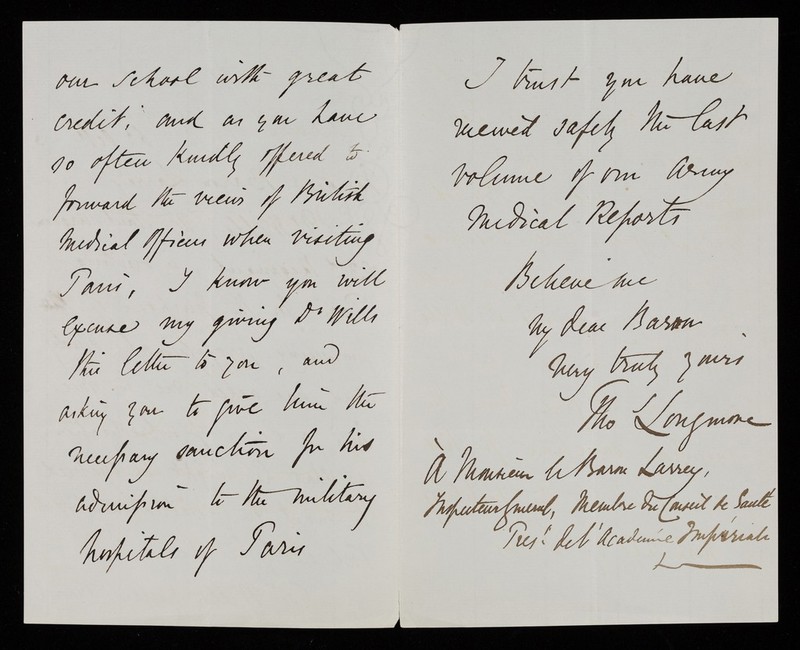 our school with great
credit; and as you have
so often kindly offered to
forward the views of British
Medical Officers when visiting
Paris, I know you will
excuse my giving Dr Wills
this letter to you, and
asking you to give him the
necessary sanction for his
admission to the military
hospitals of Paris
I trust you have
received safely the last
volume of our Army
Medical Reports
Believe me
My dear Baron
Very truly yours
Tho Longmore
À Monsieur le Baron Larrey,
Inspecteur General, Membre du Conseil de Santé
Prest. de l'Académie Impériale